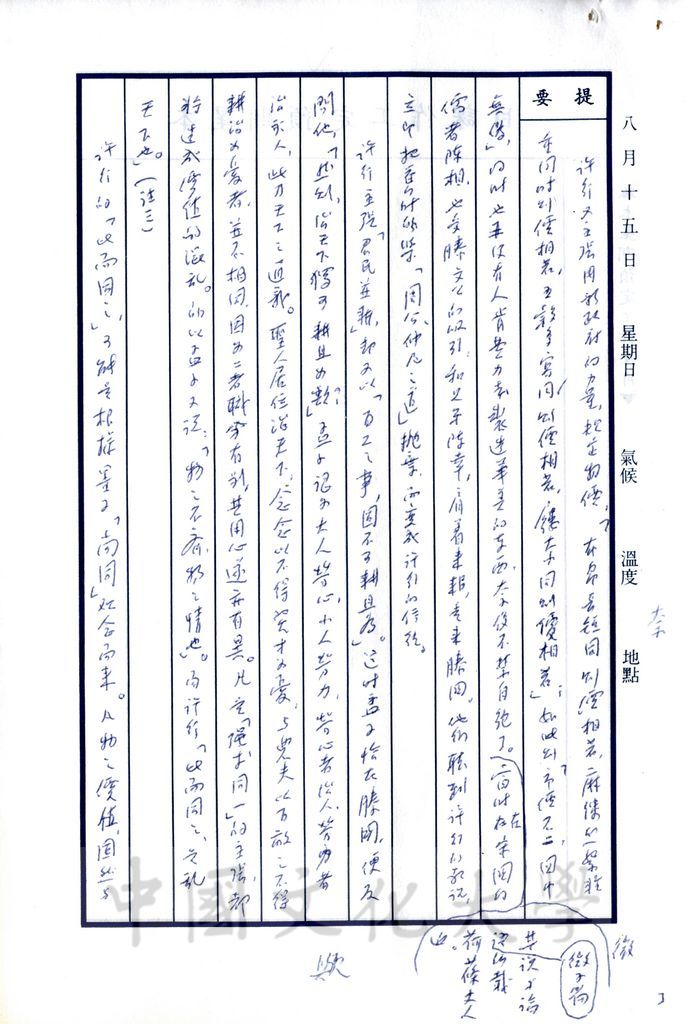 八月十五日 星期日 氣候 溫度 地點
提要
許行又主張用政府的力量，規定物價，「布帛長短同則價相若，麻縷絲絮輕
重同則價相若，五穀多寡同則價相若，屨大小同則價相若」；如此則「市價不二，國中
無偽」，同時也再沒有人肯費力去製造華美的東西，奢侈不禁自絕了。（當時在宋國的
儒者陳相，也受滕文公的吸引，和父子陳辛，肩著耒耜，走來滕國。他們聽到許行的教說，
立即把舊時的學「周公仲尼之道」拋棄，而變成許行的信徒。
許行主張「君民並耕」，卻又以「百工之事，固不可耕且為」。這時孟子恰在滕國，便反
問他，「然則，治天下獨可耕且為歟？」孟子認為大人勞心，小人勞力，勞心者治人，勞力者
治於人，此乃天下之通義。聖人居位治天下，念念以不得賢才為憂，与農夫以百畝之不得
耕治為憂者，並不相同，因為二者職分有別，其用心遂亦有異。凡主「強求同一」的主張，都
將造成價值的混亂。所以孟子又說：「物之不齊，物之情也」。而許行「比而同之，是亂
天下也。」（註三）
許行的「比而同之」，可能是根據墨子「尚同」觀念而來。凡物之價值，固然与
太子
微
微子篇
其說
論
語所載
荷蓧丈人
也。
歟
中國文化大學